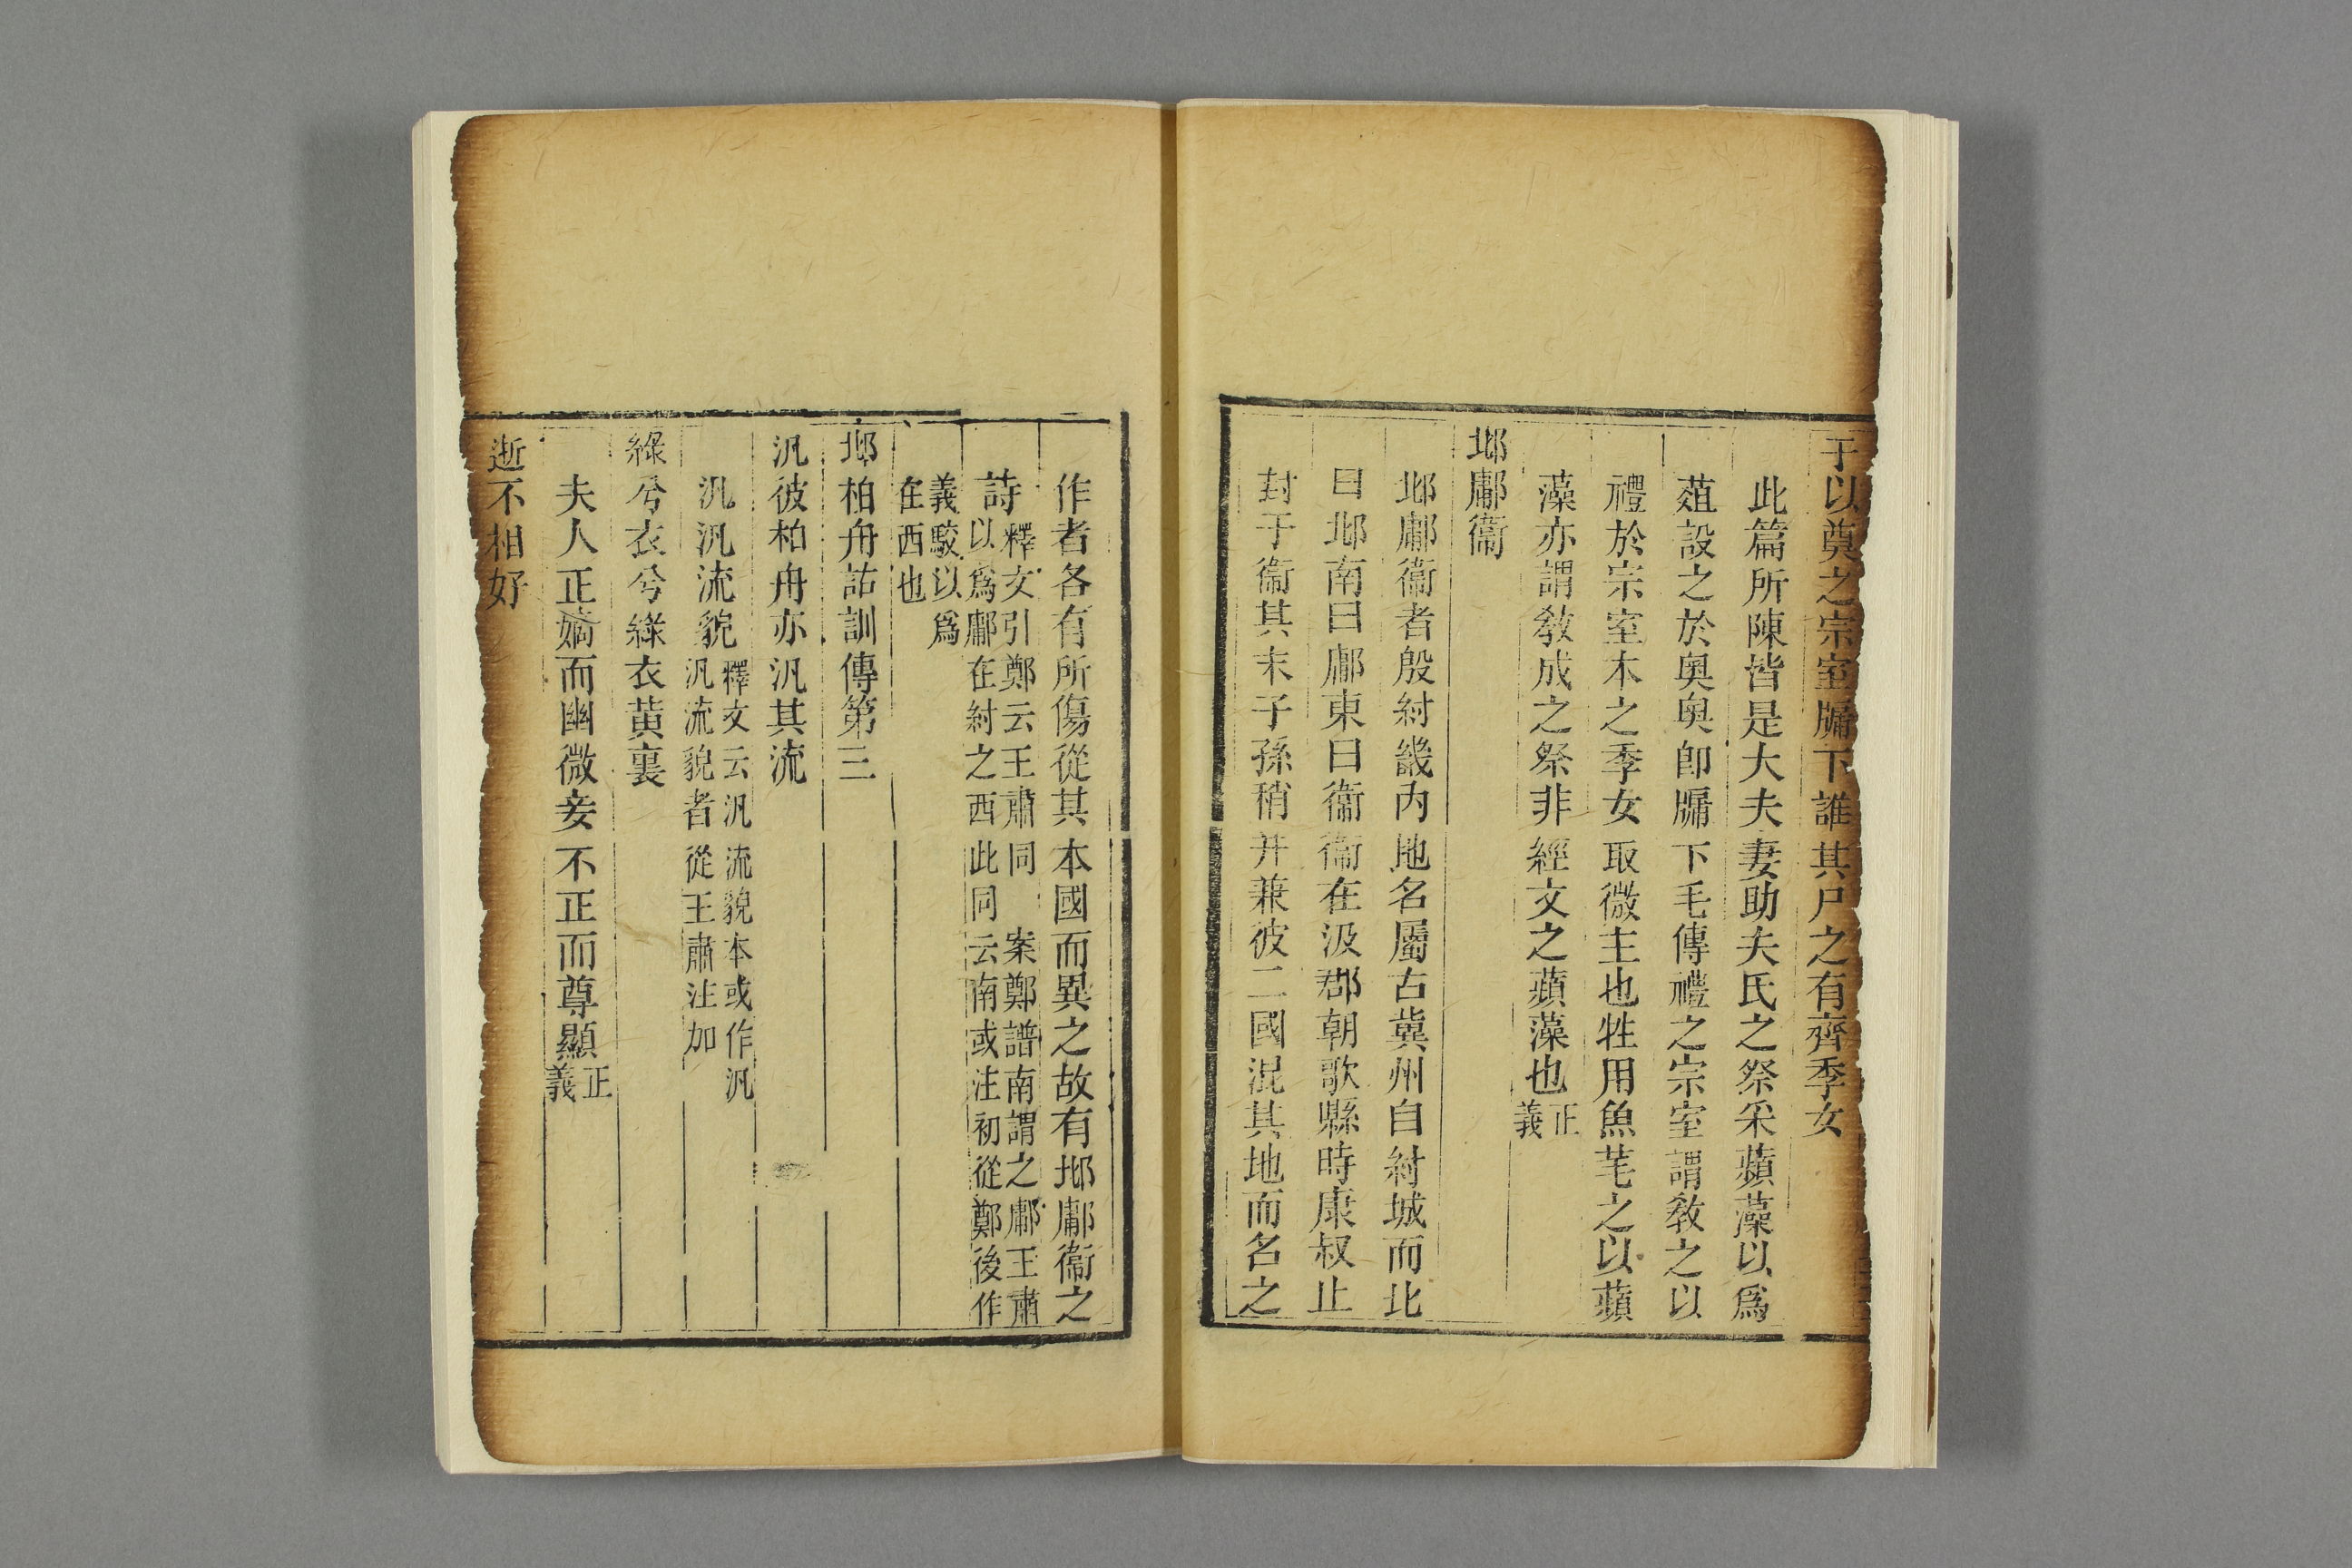 于以奠之宗室牖下誰其尸之有齊季女
此篇所陳皆是大夫妻助夫氏之祭采蘋藻以爲
葅設之於奥奥卽牖下毛傳禮之宗室謂敎之以
禮於宗室本之季女取微主也牲用魚芼之以蘋
藻亦謂敎成之祭非經文之蘋藻也正
義
邶鄘衞
邶鄘衞者殷紂畿内地名屬古冀州自紂城而北
曰邶南曰鄘東曰衞衞在汲郡朝歌縣時康叔止
封于衞其末子孫稍并兼彼二國混其地而名之
作者各有所傷從其本國而異之故有邶鄘衞之
詩釋文引鄭云王肅同 案鄭譜南謂之鄘王肅
以爲鄘在紂之西此同云南或注初從鄭後作
義駮以爲
在西也
邶柏舟詁訓傳第三
汎彼柏舟亦汎其流
汎汎流貌釋文云汎流貌本或作汎
汎流貌者從王肅注加
綠兮衣兮綠衣黃裏
夫人正嫡而幽微妾不正而尊顯正
義
逝不相好